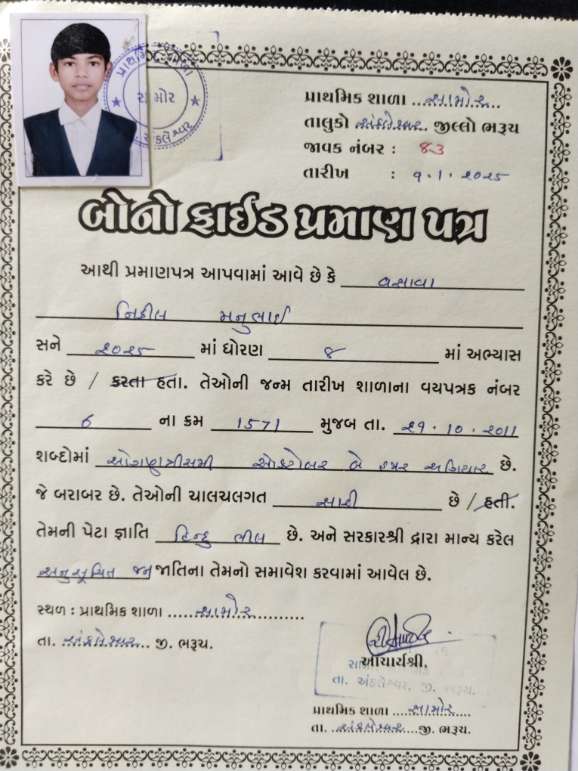 પ્રાથમિક શાળા
સામોર
અંકલેશ્વર
પ્રાથમિક શાળા ..સામોર..
તાલુકો અંકલેશ્વર. જીલ્લો ભરૂચ
જાવક નંબર : ૬૩
તારીખ : ૧.૧.૨૦૨૫
બોનો ફાઈડ પ્રમાણ પત્ર
આથી પ્રમાણપત્ર આપવામાં આવે છે કે વસાવા
નિખીલ મનુભાઈ
સને ૨૦૨૫ માં ધોરણ ૪ માં અભ્યાસ
કરે છે / કરતા હતા. તેઓની જન્મ તારીખ શાળાના વયપત્રક નંબર
6 ના ક્રમ 1571 મુજબ તા. ૨૧.૧૦.૨૦11
શબ્દોમાં ઓક્ટોબર બે હજાર અગિયાર છે.
જે બરાબર છે. તેઓની ચાલચલગત સારી છે / હતી.
તેમની પેટા જ્ઞાતિ હિન્દુ ભીલ છે. અને સરકારશ્રી દ્વારા માન્ય કરેલ
અનુસૂચિત જન જાતિના તેમનો સમાવેશ કરવામાં આવેલ છે.
સ્થળ : પ્રાથમિક શાળા ......સામોર............
તા. અંકલેશ્વર... જી. ભરૂચ.
આચાર્યશ્રી.
તા. અંકલેશ્વર, જી. ભરૂચ.
પ્રાથમિક શાળા ...સામોર....
તા. ...અંકલેશ્વર ..જી. ભરૂચ.